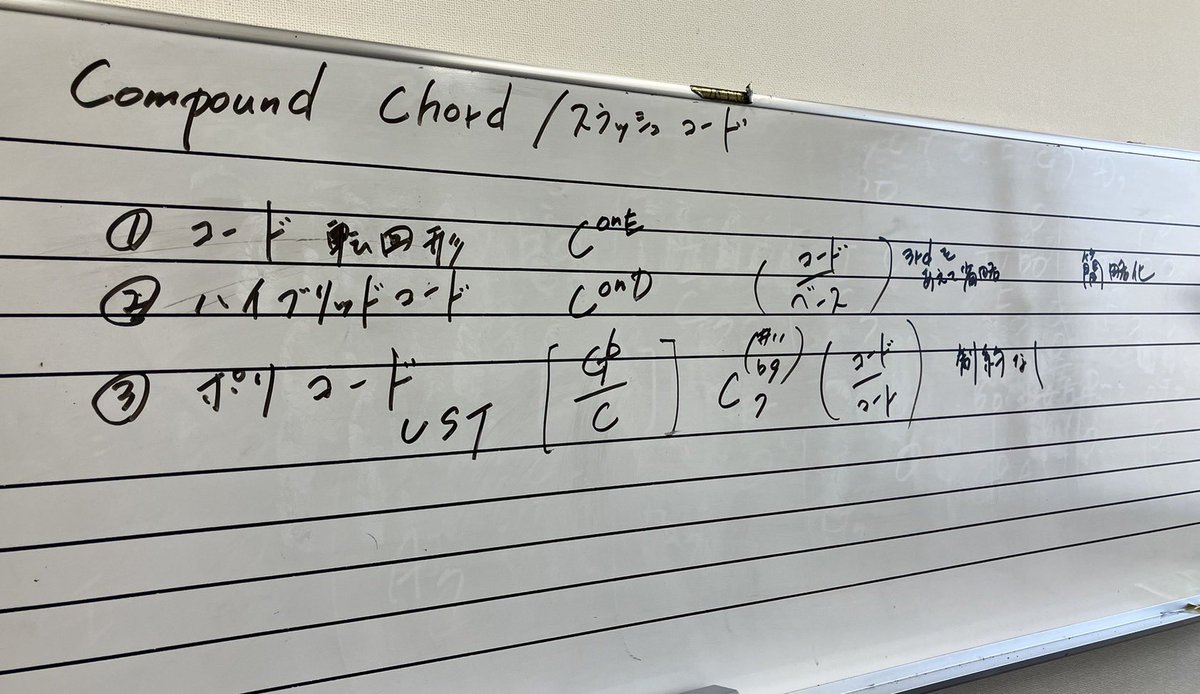 Compound Chord /スラッシュコード
① コード転回形 C onE
② ハイブリッドコード C onD (コード/ベース) 3rdをあえて省略 簡略化
③ ポリコード UST [G♭/C] C7(#11 ♭9) (コード/コード) 制約なし